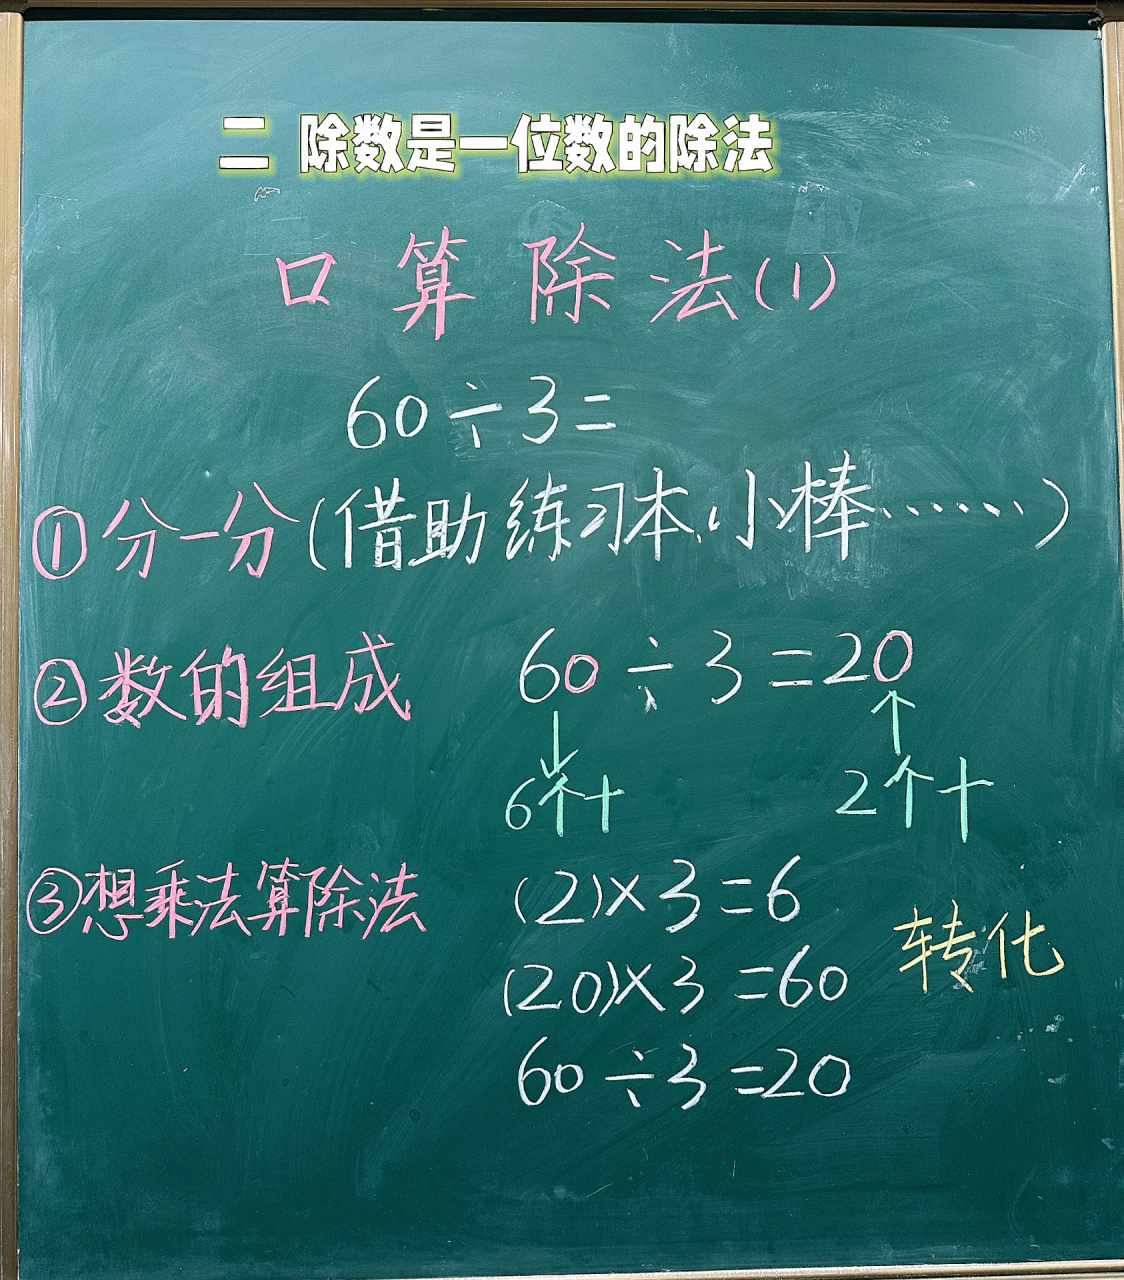 二 除数是一位数的除法
口算除法(1)
60÷3=
①分一分(借助练习本、小棒……)
②数的组成 60÷3=20
6个十 2个十
③想乘法算除法 (2)×3=6
(20)×3=60 转化
60÷3=20